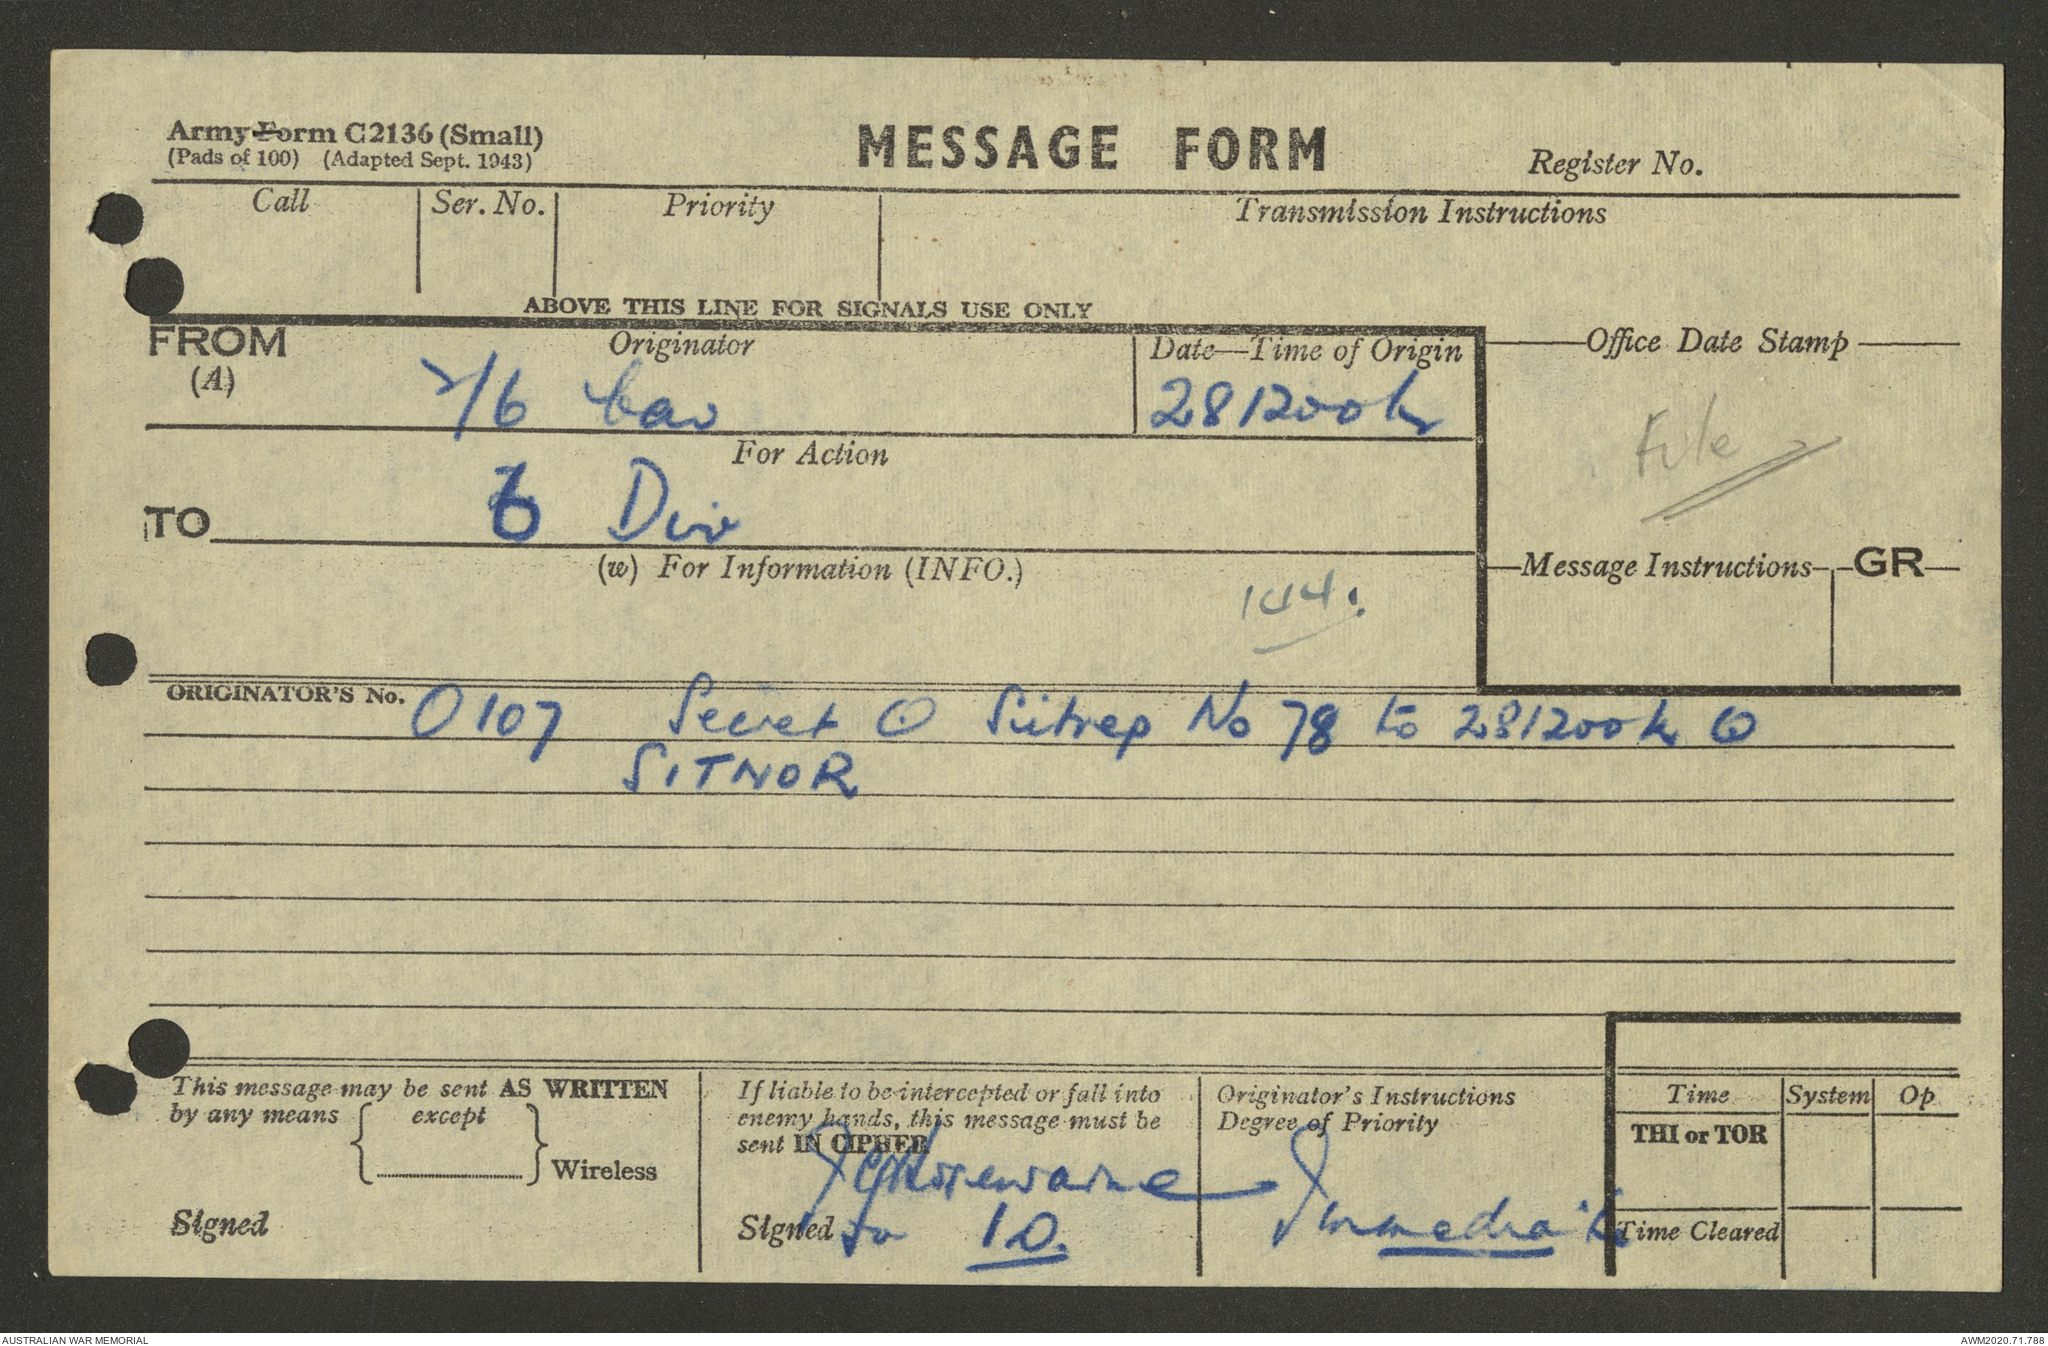 Army Form C2136 (Small)
(Pads of 100) (Adapted Sept. 1943)
MESSAGE FORM
Register No.
Call
Ser. No.
Priority
Transmission Instructions
ABOVE THIS LINE FOR SIGNALS USE ONLY
FROM
(A)
Originator
2/6 Cav
Date—Time of Origin
281200k
Office Date Stamp
File
For Action
TO
6 Div
(w) For Information (INFO.)
144.
Message Instructions
GR
ORIGINATOR'S No. O107 Secret O Sitrep No 78 to 281200k O
SITNOR
This message may be sent AS WRITTEN
by any means { except
} Wireless
Signed
If liable to be intercepted or fall into
enemy hands, this message must be
sent IN CIPHER
Signed
IO.
Originator's Instructions
Degree of Priority
Immediate
Time
System
Op
THI or TOR
Time Cleared
AUSTRALIAN WAR MEMORIAL
AWM2020.71.788